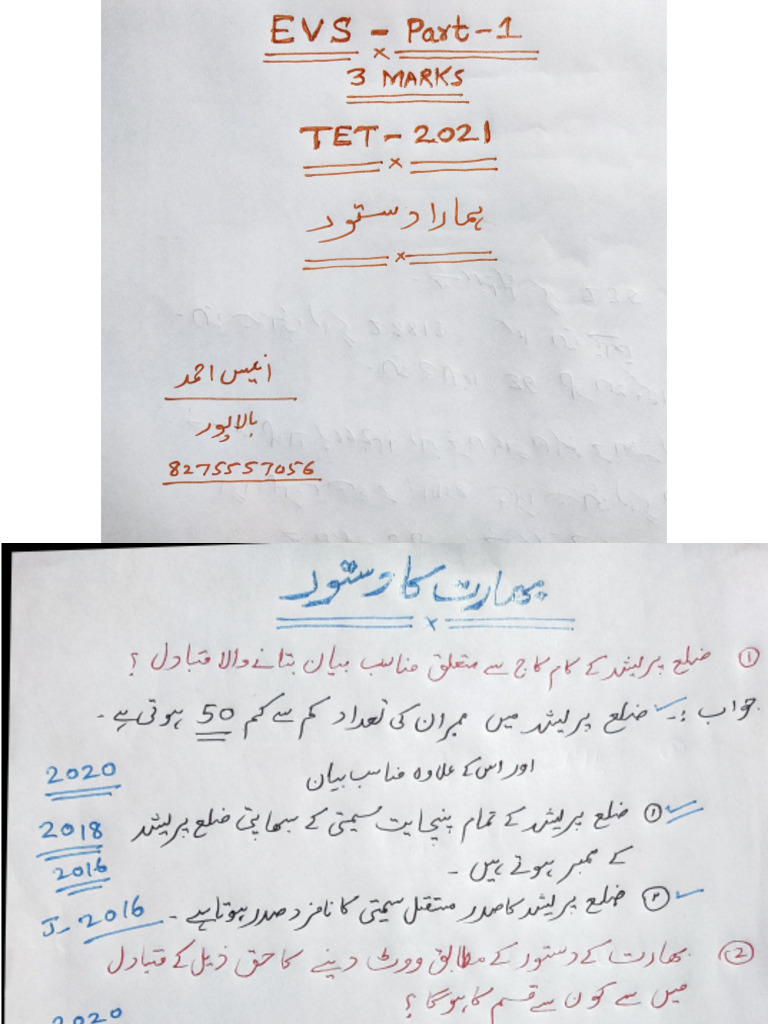 EVS - Part-1
3 MARKS
TET - 2021
ہمارا دستور
انیس احمد
بالاپور
8275557056
بھارت کا دستور
① ضلع پریشد کے کام کاج سے متعلق مناسب بیان بتانے والا متبادل ؟
جواب :۔ ضلع پریشد میں ممبران کی تعداد کم سے کم 50 ہوتی ہے ۔
اور اس کے علاوہ مناسب بیان
2020
① ضلع پریشد کے تمام پنچایت سمیتی کے سبھاپتی ضلع پریشد
2018
کے ممبر ہوتے ہیں ۔
2016
② ضلع پریشد کا صدر مستقل سمیتی کا نامزد صدر ہوتا ہے ۔
J-2016
② بھارت کے دستور کے مطابق ووٹ دینے کا حق ذیل کے متبادل
میں سے کون سے قسم کا ہوگا ؟
2020